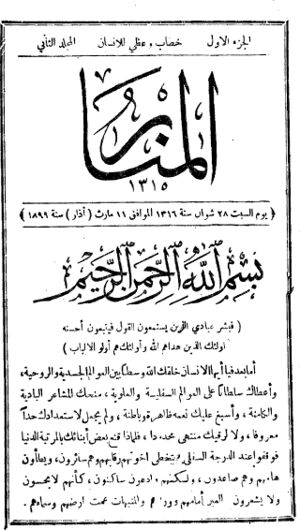 الجزء الاول خطاب وعظي للانسان المجلد الثاني
المنار
١٣١٥
﴿ يوم السبت ٢٨ شوال سنة ١٣١٦ الموافق ١١ مارث ( آذار ) سنة ١٨٩٩ ﴾
بسم الله الرحمن الرحيم
( فبشر عبادي الذين يستمعون القول فيتبعون أحسنه
اولئك الذين هداهم الله وأولئك هم أولو الالباب )
أما بعد فيا أيها الانسان خلقك الله وسطا بين العوالم الجسدية والروحية،
وأعطاك سلطانا على العوالم السفلية والعلوية، ومنحك المشاعر البادية
والكامنة، وأسبغ عليك نعمه ظاهرة وباطنة، ولم يجعل لاستعدادك حدا
معروفا، ولا لرقيك منتهى محدودا، فلماذا قنع بعض أبنائك بالمرتبة الدنيا
فوقفوا عند الدرجة السفلى، يتخطى اخوتهم رقابهم وهم سائرون، ويطأون
هاماتهم وهم صاعدون، ولكنهم وادعون ساكنون، كأنهم لا يحسون
ولا يشعرون العبر أمامهم ووراءهم والمنبهات عمت ارضهم وسماءهم